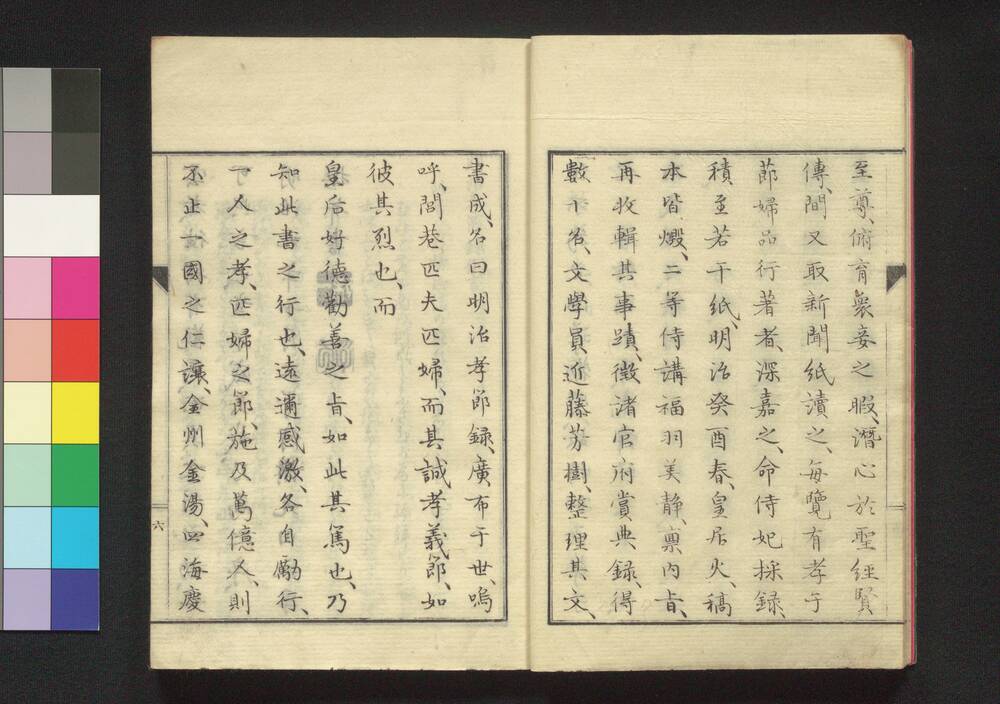 至尊、俯育衆妾之暇、潛心於聖經賢
傳、間又取新聞紙讀之、每覽有孝子
節婦品行著者、深嘉之、命侍妃採錄、
積至若干紙、明治癸酉春、皇居火、稿
本皆燬、二等侍講福羽美静、禀内旨、
再收輯其事蹟、徴諸官府賞典録、得
數十名、文學員近藤芳樹、整理其文、
書成、名曰明治孝節録、廣布于世、嗚
呼、閭巷匹夫匹婦、而其誠孝義節、如
彼其烈也、而
皇后好德勸善之旨、如此其篤也、乃
知此書之行也、遠邇感激、各自勵行、
一人之孝、匹婦之節、施及萬億人、則
不止一國之仁讓、金州金湯、四海慶
六